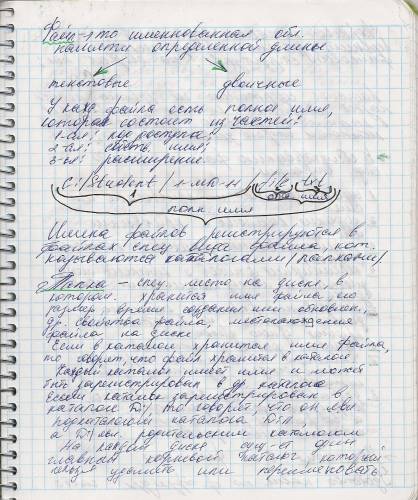 Файл - это именнованная обл.
памяти определенной длины
текстовые двоичные
У кажд файла есть полное имя,
которое состоит из частей:
1-ая: код доступа;
2-ая: собств. имя;
3-ья: расширение.
C:/Student/1-МЮ-11/file.txt
полн имя
Имена файлов регистрируются в
файлах спец. вида файла, кот.
называются каталогами /папками/
Папка - спец. место на диске, в
котором хранится имя файла, его
размер, время создания или обновлен.,
др свойства файла, местонахождения
файла на диске
Если в каталоге хранится имя файла,
то говорят, что файл хранится в каталоге
Каждый каталог имеет имя и может
быть зарегистрирован в др каталоге
если каталог зарегистрирован в
каталоге D1, то говорят, что он явл
подкаталогом каталога D1,
а D1 явл. родительским каталогом
На каждом диске сущ-ет один
главный корневой каталог, который
нельзя удалить или переименовать